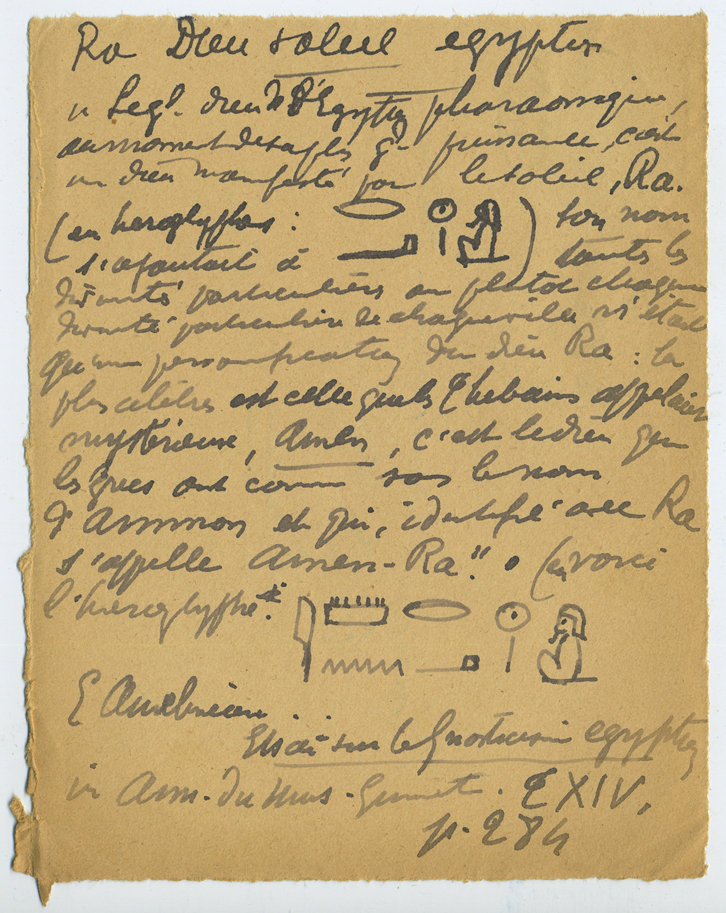 Ra Dieu soleil egyptien
"Le gd. dieu de l'Egypte pharaonique,
au moment de sa plus gde puissance, c'est
un dieu manifesté par le soleil, Ra.
(en hieroglyphes : ) son nom
s'ajoutait à toutes les
divinités particulières ou plutot chaque
divinité particulière de chaque ville n'était
qu'une personnification du dieu Ra : la
plus célèbre est celle que les Thebains appelaient
mystérieuse, Amen, c'est le dieu que
les grecs ont connu sous le nom
d'Ammon et qui, identifié avec Ra
s'appelle Amen-Ra". (en voici
l'hieroglyphe*:
E Amelineau
Essai sur le Gnosticisme egyptien
in Ann. du Mus. Guimet. T XIV,
p. 284